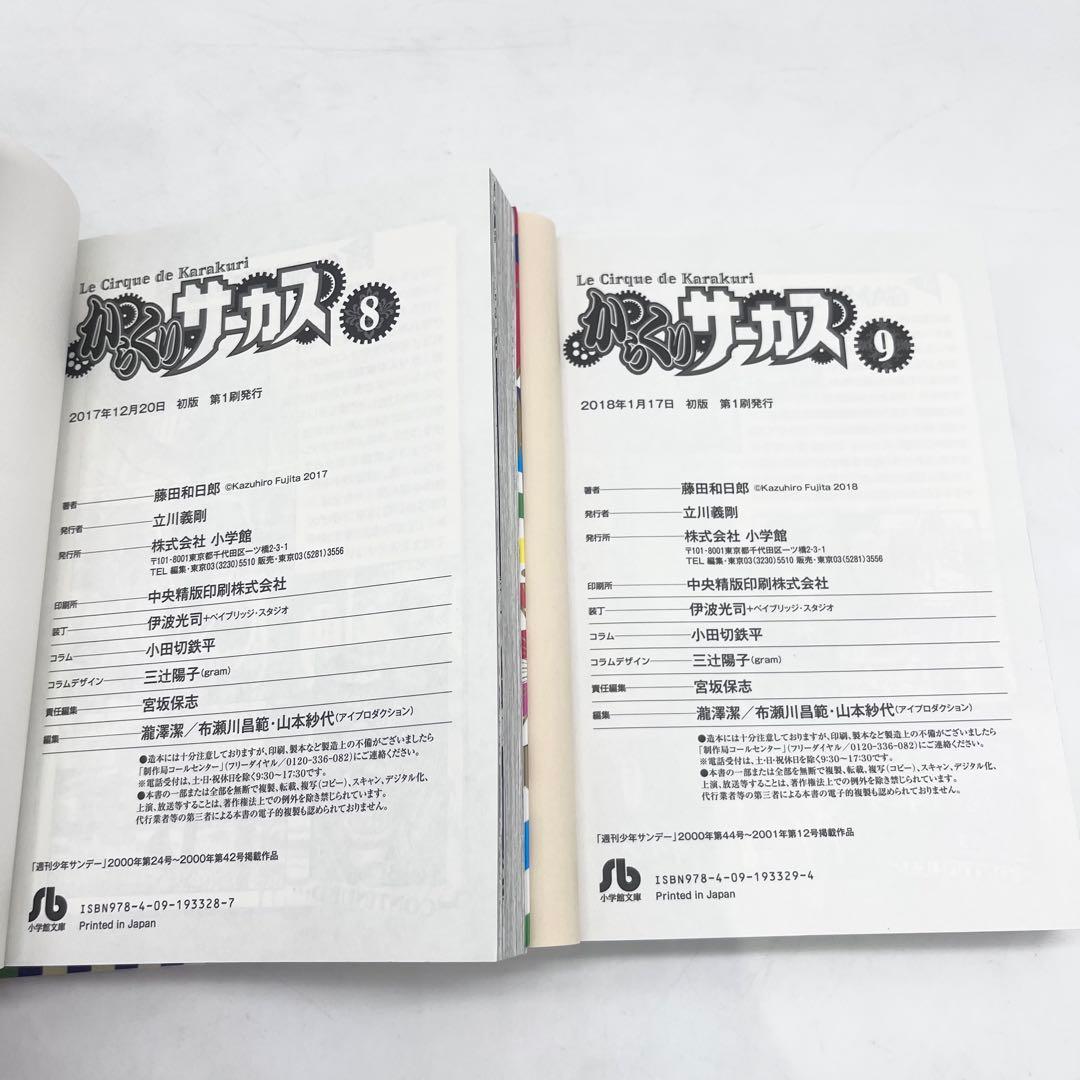 Le Cirque de Karakuri
からくりサーカス 8
2017年12月20日 初版 第1刷発行
著者 藤田和日郎 ©Kazuhiro Fujita 2017
発行者 立川義剛
発行所 株式会社 小学館
〒101-8001東京都千代田区一ツ橋2-3-1
TEL 編集・東京03(3230)5510 販売・東京03(5281)3556
印刷所 中央精版印刷株式会社
装丁 伊波光司+ベイブリッジ・スタジオ
コラム 小田切鉄平
コラムデザイン 三辻陽子(gram)
責任編集 宮坂保志
編集 瀧澤潔/布瀬川昌範・山本紗代(アイプロダクション)
●造本には十分注意しておりますが、印刷、製本など製造上の不備がございましたら
「制作局コールセンター」(フリーダイヤル/0120-336-082)にご連絡ください。
※電話受付は、土・日・祝休日を除く9:30〜17:30です。
●本書の一部または全部を無断で複製、転載、複写(コピー)、スキャン、デジタル化、
上演、放送等することは、著作権法上での例外を除き禁じられています。
代行業者等の第三者による本書の電子的複製も認められておりません。
「週刊少年サンデー」2000年第24号〜2000年第42号掲載作品
小学館文庫
ISBN978-4-09-193328-7
Printed in Japan
Le Cirque de Karakuri
からくりサーカス 9
2018年1月17日 初版 第1刷発行
著者 藤田和日郎 ©Kazuhiro Fujita 2018
発行者 立川義剛
発行所 株式会社 小学館
〒101-8001東京都千代田区一ツ橋2-3-1
TEL 編集・東京03(3230)5510 販売・東京03(5281)3556
印刷所 中央精版印刷株式会社
装丁 伊波光司+ベイブリッジ・スタジオ
コラム 小田切鉄平
コラムデザイン 三辻陽子(gram)
責任編集 宮坂保志
編集 瀧澤潔/布瀬川昌範・山本紗代(アイプロダクション)
●造本には十分注意しておりますが、印刷、製本など製造上の不備がございましたら
「制作局コールセンター」(フリーダイヤル/0120-336-082)にご連絡ください。
※電話受付は、土・日・祝休日を除く9:30〜17:30です。
●本書の一部または全部を無断で複製、転載、複写(コピー)、スキャン、デジタル化、
上演、放送等することは、著作権法上での例外を除き禁じられています。
代行業者等の第三者による本書の電子的複製も認められておりません。
「週刊少年サンデー」2000年第44号〜2001年第12号掲載作品
小学館文庫
ISBN978-4-09-193329-4
Printed in Japan